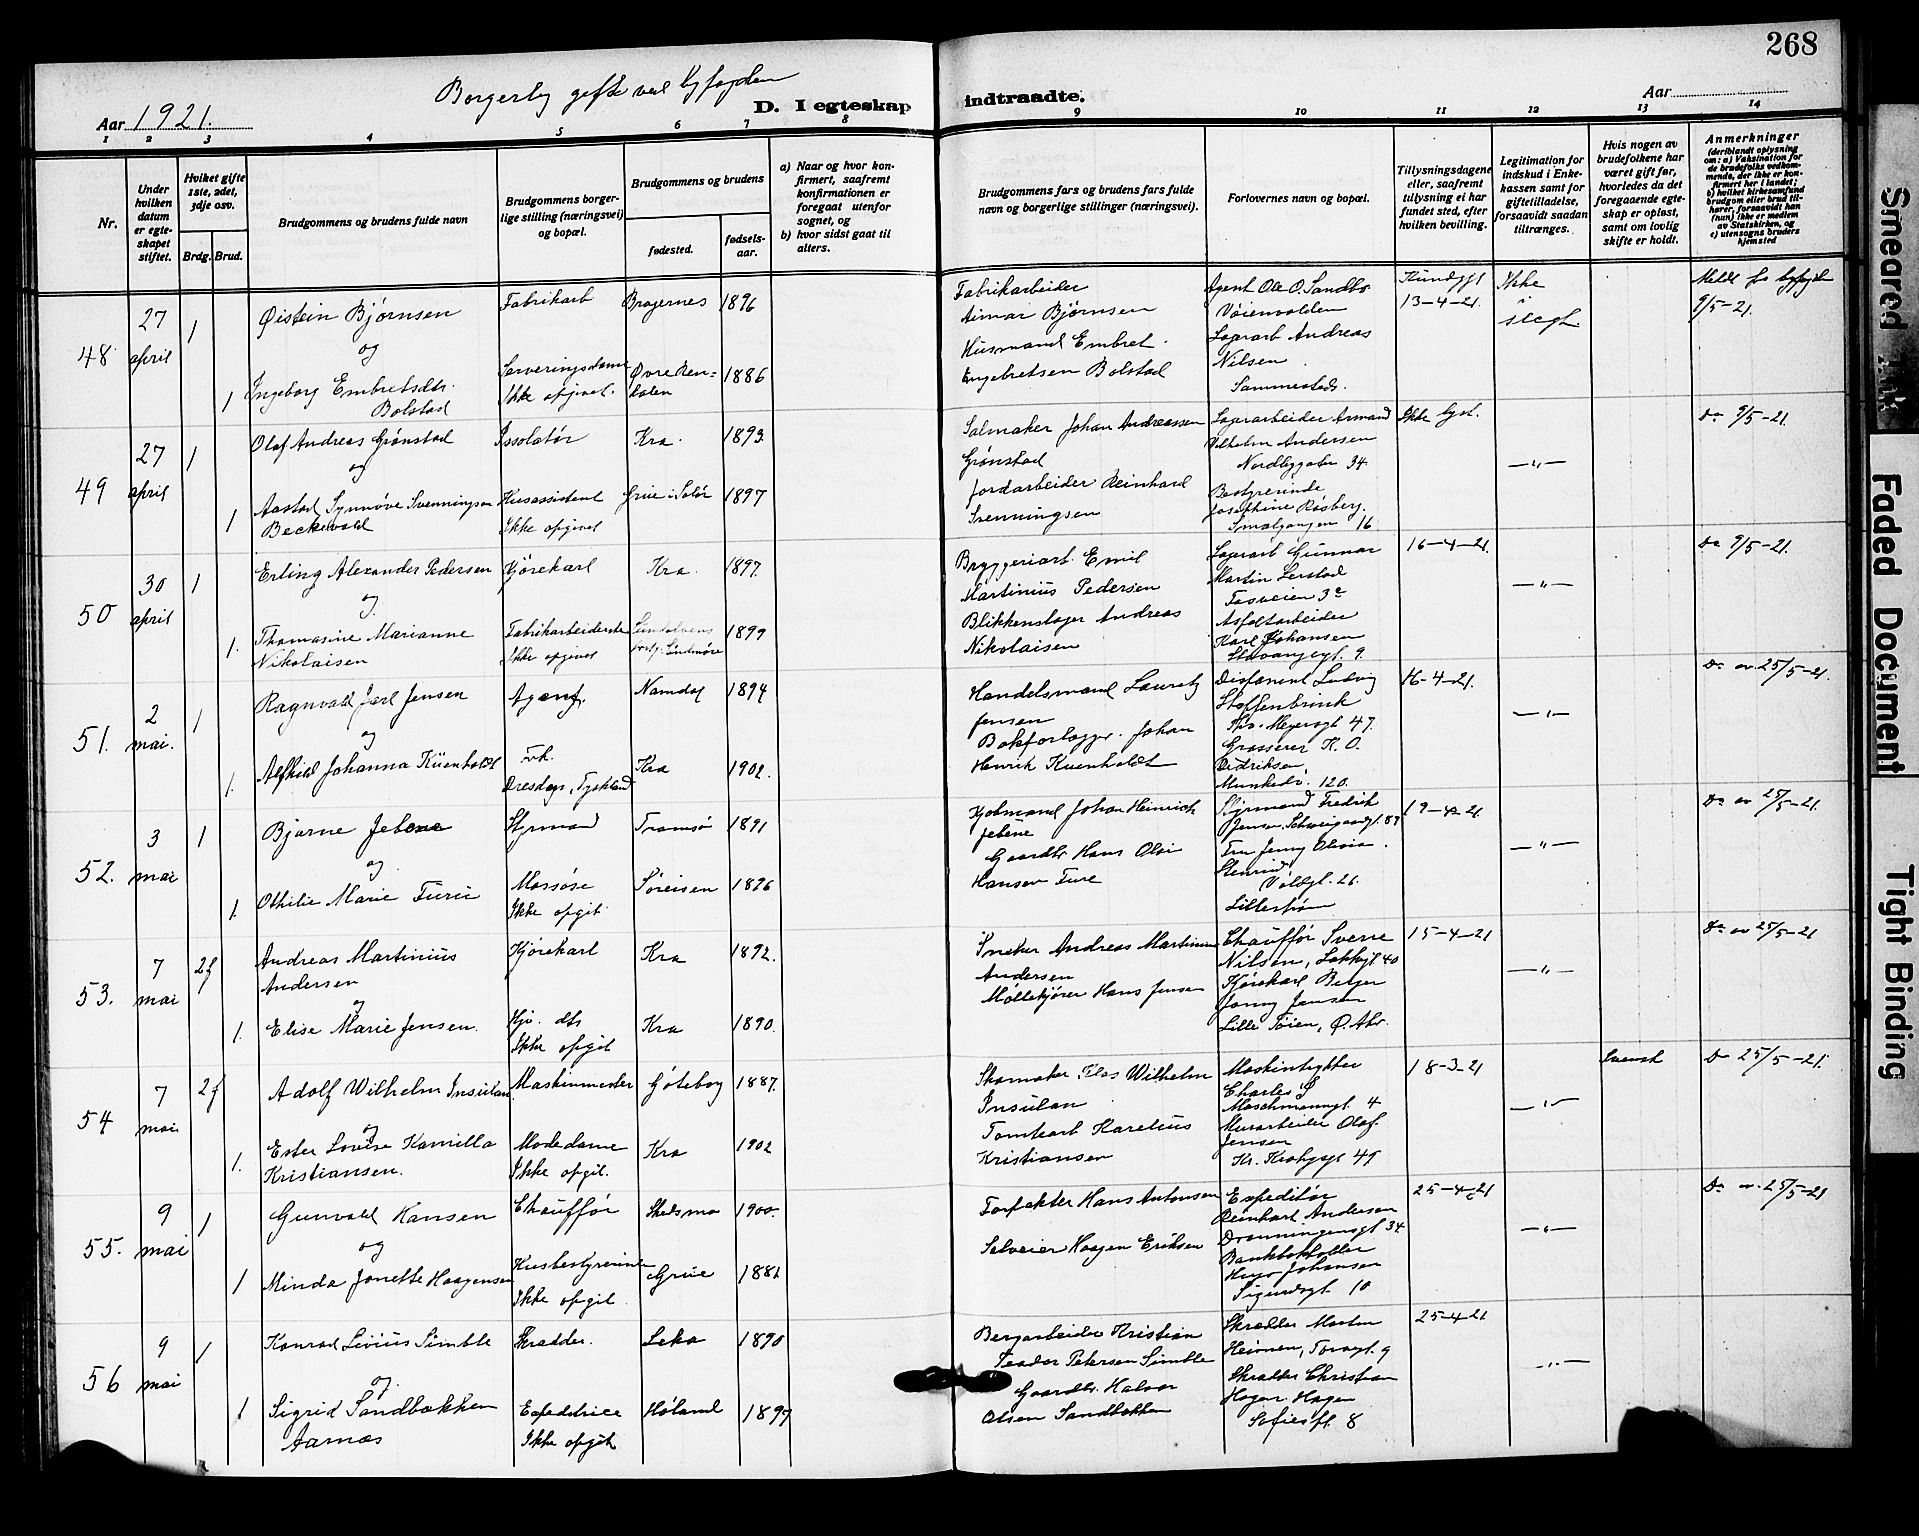 268
Borgerlig gifte ved byfogden
D. I egteskap indtraadte.
Aar 1921.
Aar
1 2 3 4 5 6 7 8 9 10 11 12 13 14
Nr.
Under hvilken datum er egteskapet stiftet.
Hviket gifte 1ste, 2det, 3dje osv.
Brdg. Brud.
Brudgommens og brudens fulde navn
Brudgommens borgerlige stilling (næringsvei) og bopæl.
Brudgommens og brudens
fødested.
fødselsaar.
a) Naar og hvor konfirmert, saafremt konfirmationen er foregaat utenfor sognet, og
b) hvor sidst gaat til alters.
Brudgommens fars og brudens fars fulde navn og borgerlige stillinger (næringsvei).
Forlovernes navn og bopæl.
Tillysningsdagene eller, saafremt tillysning ei har fundet sted, efter hvilken bevilling.
Legitimation for indskud i Enkekassen samt for giftetilladelse, forsaavidt saadan tiltrænges.
Hvis nogen av brudefolkene har været gift før, hvorledes da det foregaaende egteskap er opløst, samt om lovlig skifte er holdt.
Anmerkninger (deriblandt oplysning om: a) Vaksination for de brudefolks vedkommende, der ikke er konfirmert her i landet; b) hvilket kirkesamfund brudgom eller brud tilhører, forsaavidt han (hun) ikke er medlem av Statskirken, og c) utensogns bruders hjemsted
48 27 april 1 Øistein Bjørnsen Fabrikarb Bragernes 1896
og
1 Ingeborg Embretsdtr. Bolstad Serveringsdame Ikke opgivet. Øvre Rendalen 1886
Fabrikarbeider Aimar Bjørnsen
Husmand Embret Engebretsen Bolstad
Agent Ole O. Sandbo Vøienvolden
Lagerarb Andreas Nilsen Sammesteds.
Kundgjt 13-4-21. Ikke i slegt
Meldt fra byfogden 9/5-21.
49 27 april 1 Olaf Andreas Grønstad Issolatør Kra. 1893
og
1 Aastad Synnøve Svenningsen Beckevold Husassistent Ikke opgivet Grue i Solør 1897
Salmaker Johan Andreassen Grønstad
Jordarbeider Reinhard Svenningsen
Lagerarbeider Armand Vilhelm Andersen Nordbygaten 34.
Bestyrerinde Josephine Røsberg. Smalgangen 16
Ikke lyst. —"— Do 9/5-21.
50 30 april 1 Erling Alexander Pedersen Kjørekarl Kra. 1897.
og
1. Thomasine Marianne Nikolaisen Fabrikarbeiderske Ikke opgivet 1899
Bryggeriarb. Emil Martinius Pedersen
Blikkenslager Andreas Nikolaisen
Lagerarb Gunnar Martin Lerstad
Asfaltarbeider Karl Johansen Stavangergt. 9.
16-4-21. —"— Do 9/5-21.
51. 2 mai. 1 Ragnvald Jarl Jensen Agent. Namdal 1894
og
1. Alfhild Johanna Küenholdt Frk. Dresden, Tyskland Kra 1902.
Handelsmand Lauretz Jensen
Bokforlegger. Johan Henrik Kuenholdt
Disponent Ludvig Stoffenbrink Thv. Meyersgt 47.
Grosserer K. O. Didriksen, Munkedv. 120.
16-4-21. —"— Do av 25/5-21.
52. 3 mai 1 Bjarne Jebene Styrmand Tromsø 1891
og
1. Othilie Marie Furu Massøse Ikke opgit. Søreisen 1896
Kjøbmand Johan Heinrich Jebene
Gaardbr Hans Olai Hansen Fure
Styrmand Fredrik Jensen Schweigaardsgt. 87
Fru Jenny Olivia Voldgt. 26. Lillestrøm
19-4-21. —"— Do av 25/5-21.
53. 7 mai 2f Andreas Martinius Andersen Kjørekarl Kra 1892.
og
1. Elise Marie Jensen. Ikke opgit Kra 1890.
Snekker Andreas Martinus Andersen
Møllekjører Hans Jensen
Chauffør Sverre Nilsen, Lakkgt 40
Kjørekarl Birger Jonny Jensen Lille Tøien, Ø. Akr.
15-4-21 —"— Do av 25/5-21
54 7 mai 2f Adolf Wilhelm Insulan Maskinmester Göteborg 1887.
og
1. Ester Lovise Kamilla Kristiansen. Modedame Ikke opgit. Kra 1902
Skomaker Wilhelm Insulan
Tomtearb Karelius Kristiansen
Charles Maschmannsgt. 4
Murarbeider Olaf Jensen
18-3-21 —"— Svensk Do 25/5-21.
55. 9 mai 1 Gunvald Hansen Chauffør Skedsmo 1900.
og
1 Minda Jonette Haagensen Husbestyrerinde Ikke opgit. Grue 1881
Forpakter Hans Antonsen
Selveier Haagen Eriksen
Expeditør Reinhart Andersen Dronningensgt 34.
Bankbokholder Hugo Johansen Sigurdsgt 10
25-4-21 —"— Do av. 25/5-21
56 9 mai 1 Konrad Livius Simble Skrædder. Leka 1890
og.
1 Sigrid Sandbækken Aarnæs Expeditrice Ikke opgit Høland 1897
Bergarbeider Kristian Teodor Petersen Simble
Gaardbr. Halvor Olsen Sandbækken
Skrædder Morten Heimen, Torvgt. 9
Skrædder Christian Hagen Sofies pl. 8
25-4-21 —"—
Smeared Ink
Faded Document
Tight Binding